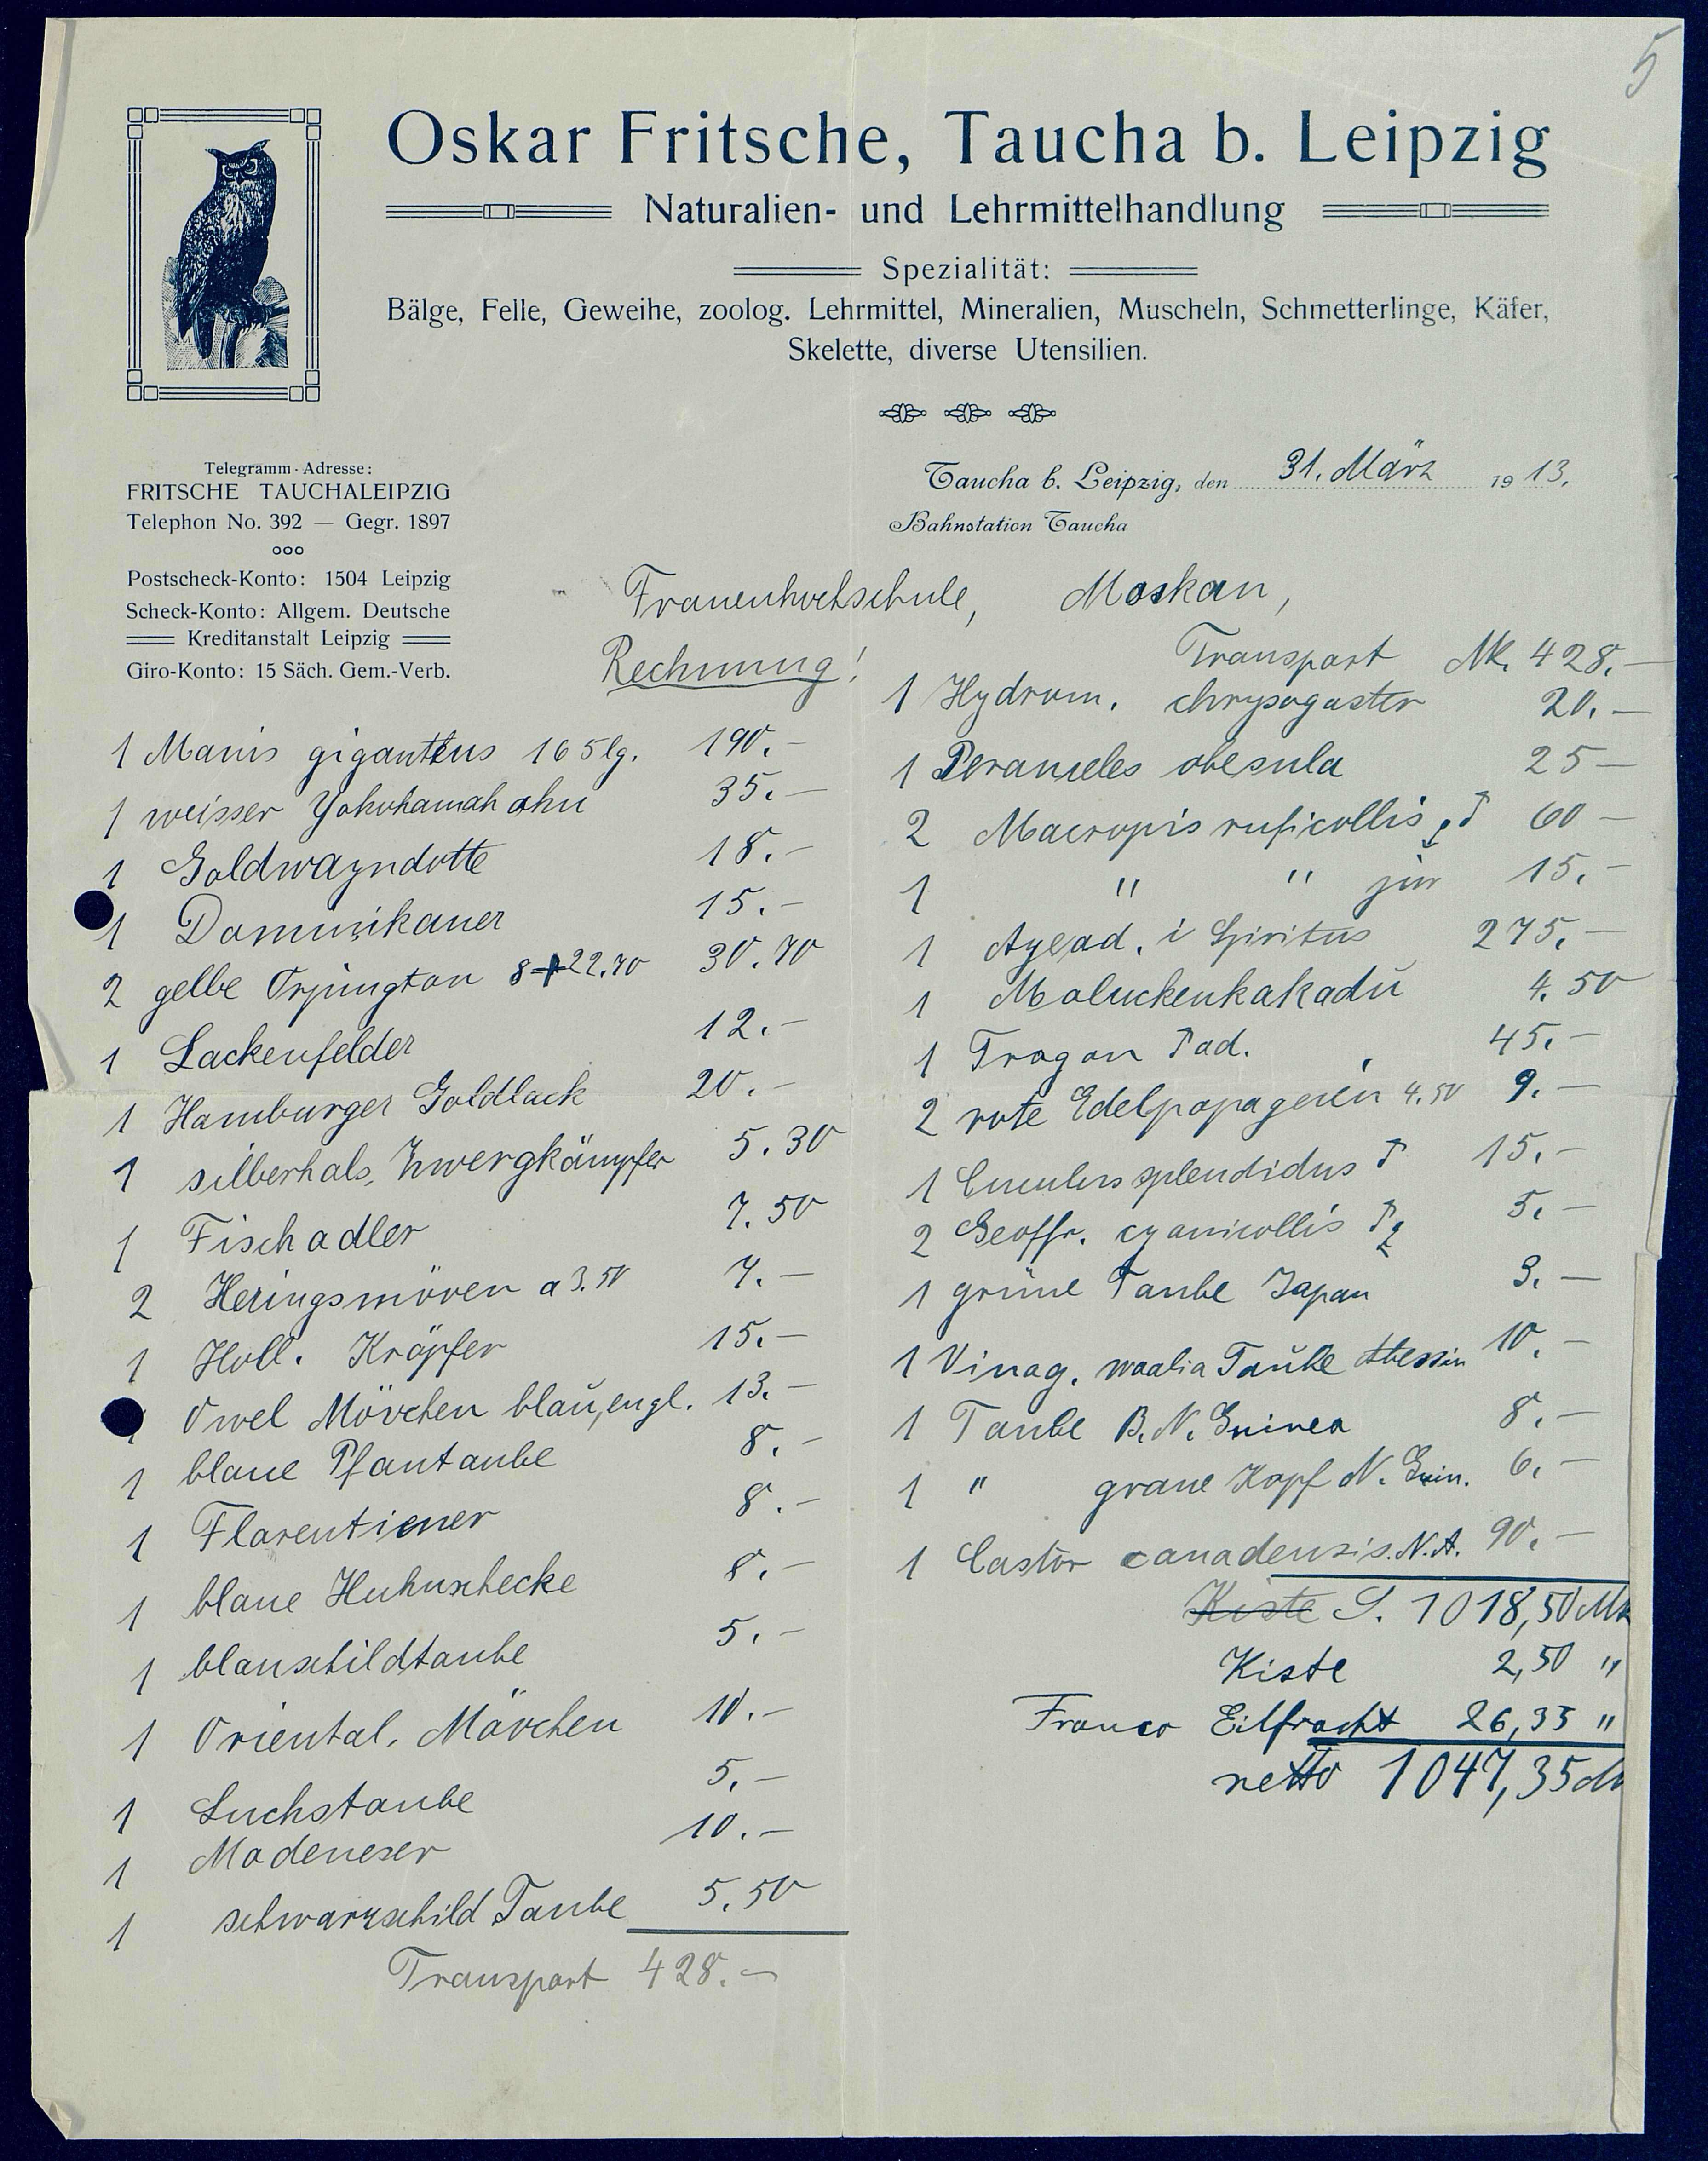 5
Oskar Fritsche, Taucha b. Leipzig
Naturalien- und Lehrmittelhandlung
Spezialität:
Bälge, Felle, Geweihe, zoolog. Lehrmittel, Mineralien, Muscheln, Schmetterlinge, Käfer,
Skelette, diverse Utensilien.
Telegramm-Adresse:
FRITSCHE TAUCHALEIPZIG
Telephon No. 392 — Gegr. 1897
ooo
Postscheck-Konto: 1504 Leipzig
Scheck-Konto: Allgem. Deutsche
Kreditanstalt Leipzig
Giro-Konto: 15 Säch. Gem.-Verb.
Taucha b. Leipzig, den 31. März 1913.
Bahnstation Taucha
Frauenhochschule, Moskau,
Rechnung!
1 Manis giganteus 165 lg. 190.-
1 weisser Yokohamahahn 35.-
1 Goldwayndotte 18.-
1 Dominikaner 15.-
2 gelbe Orpington 8 + 22.70 30.70
1 Lackenfelder 12.-
1 Hamburger Goldlack 20.-
1 silberhals. Zwergkämpfer 5.30
1 Fischadler 7.50
2 Heringsmöven a 3.50 7.-
1 Holl. Kröpfer 15.-
Owel Mövchen blau, engl. 13.-
1 blaue Pfautaube 8.-
1 Florentiner 8.-
1 blaue Huhnschecke 8.-
1 blauschildtaube 5.-
1 Oriental. Mövchen 10.-
1 Luchstaube 5.-
1 Modeneser 10.-
1 schwarzschild Taube 5.50
Transport 428.-
Transport Mk. 428.-
1 Hydrom. chrysogaster 20.-
1 Perameles obesula 25-
2 Macropis ruficollis ♀♂ 60-
1 " " juv 15.-
1 ad. i Spiritus 275.-
1 Moluckenkakadu 4.50
1 Trogon ♂ ad. 45.-
2 rote Edelpapageien 4.50 9.-
1 Cuculus splendidus ♂ 15.-
2 Geoffr. cyanicollis ♂♀ 5.-
1 grüne Taube Japan 3.-
1 Vinag. waalia Taube Abessin 10.-
1 Taube B. N. Guinea 8.-
1 " graue Kopf N. Guin. 6.-
1 Castor canadensis. N.A. 90.-
Kiste S. 1018,50 Mk
Kiste 2,50 "
Franco Eilfracht 26,35 "
netto 1047,35 M